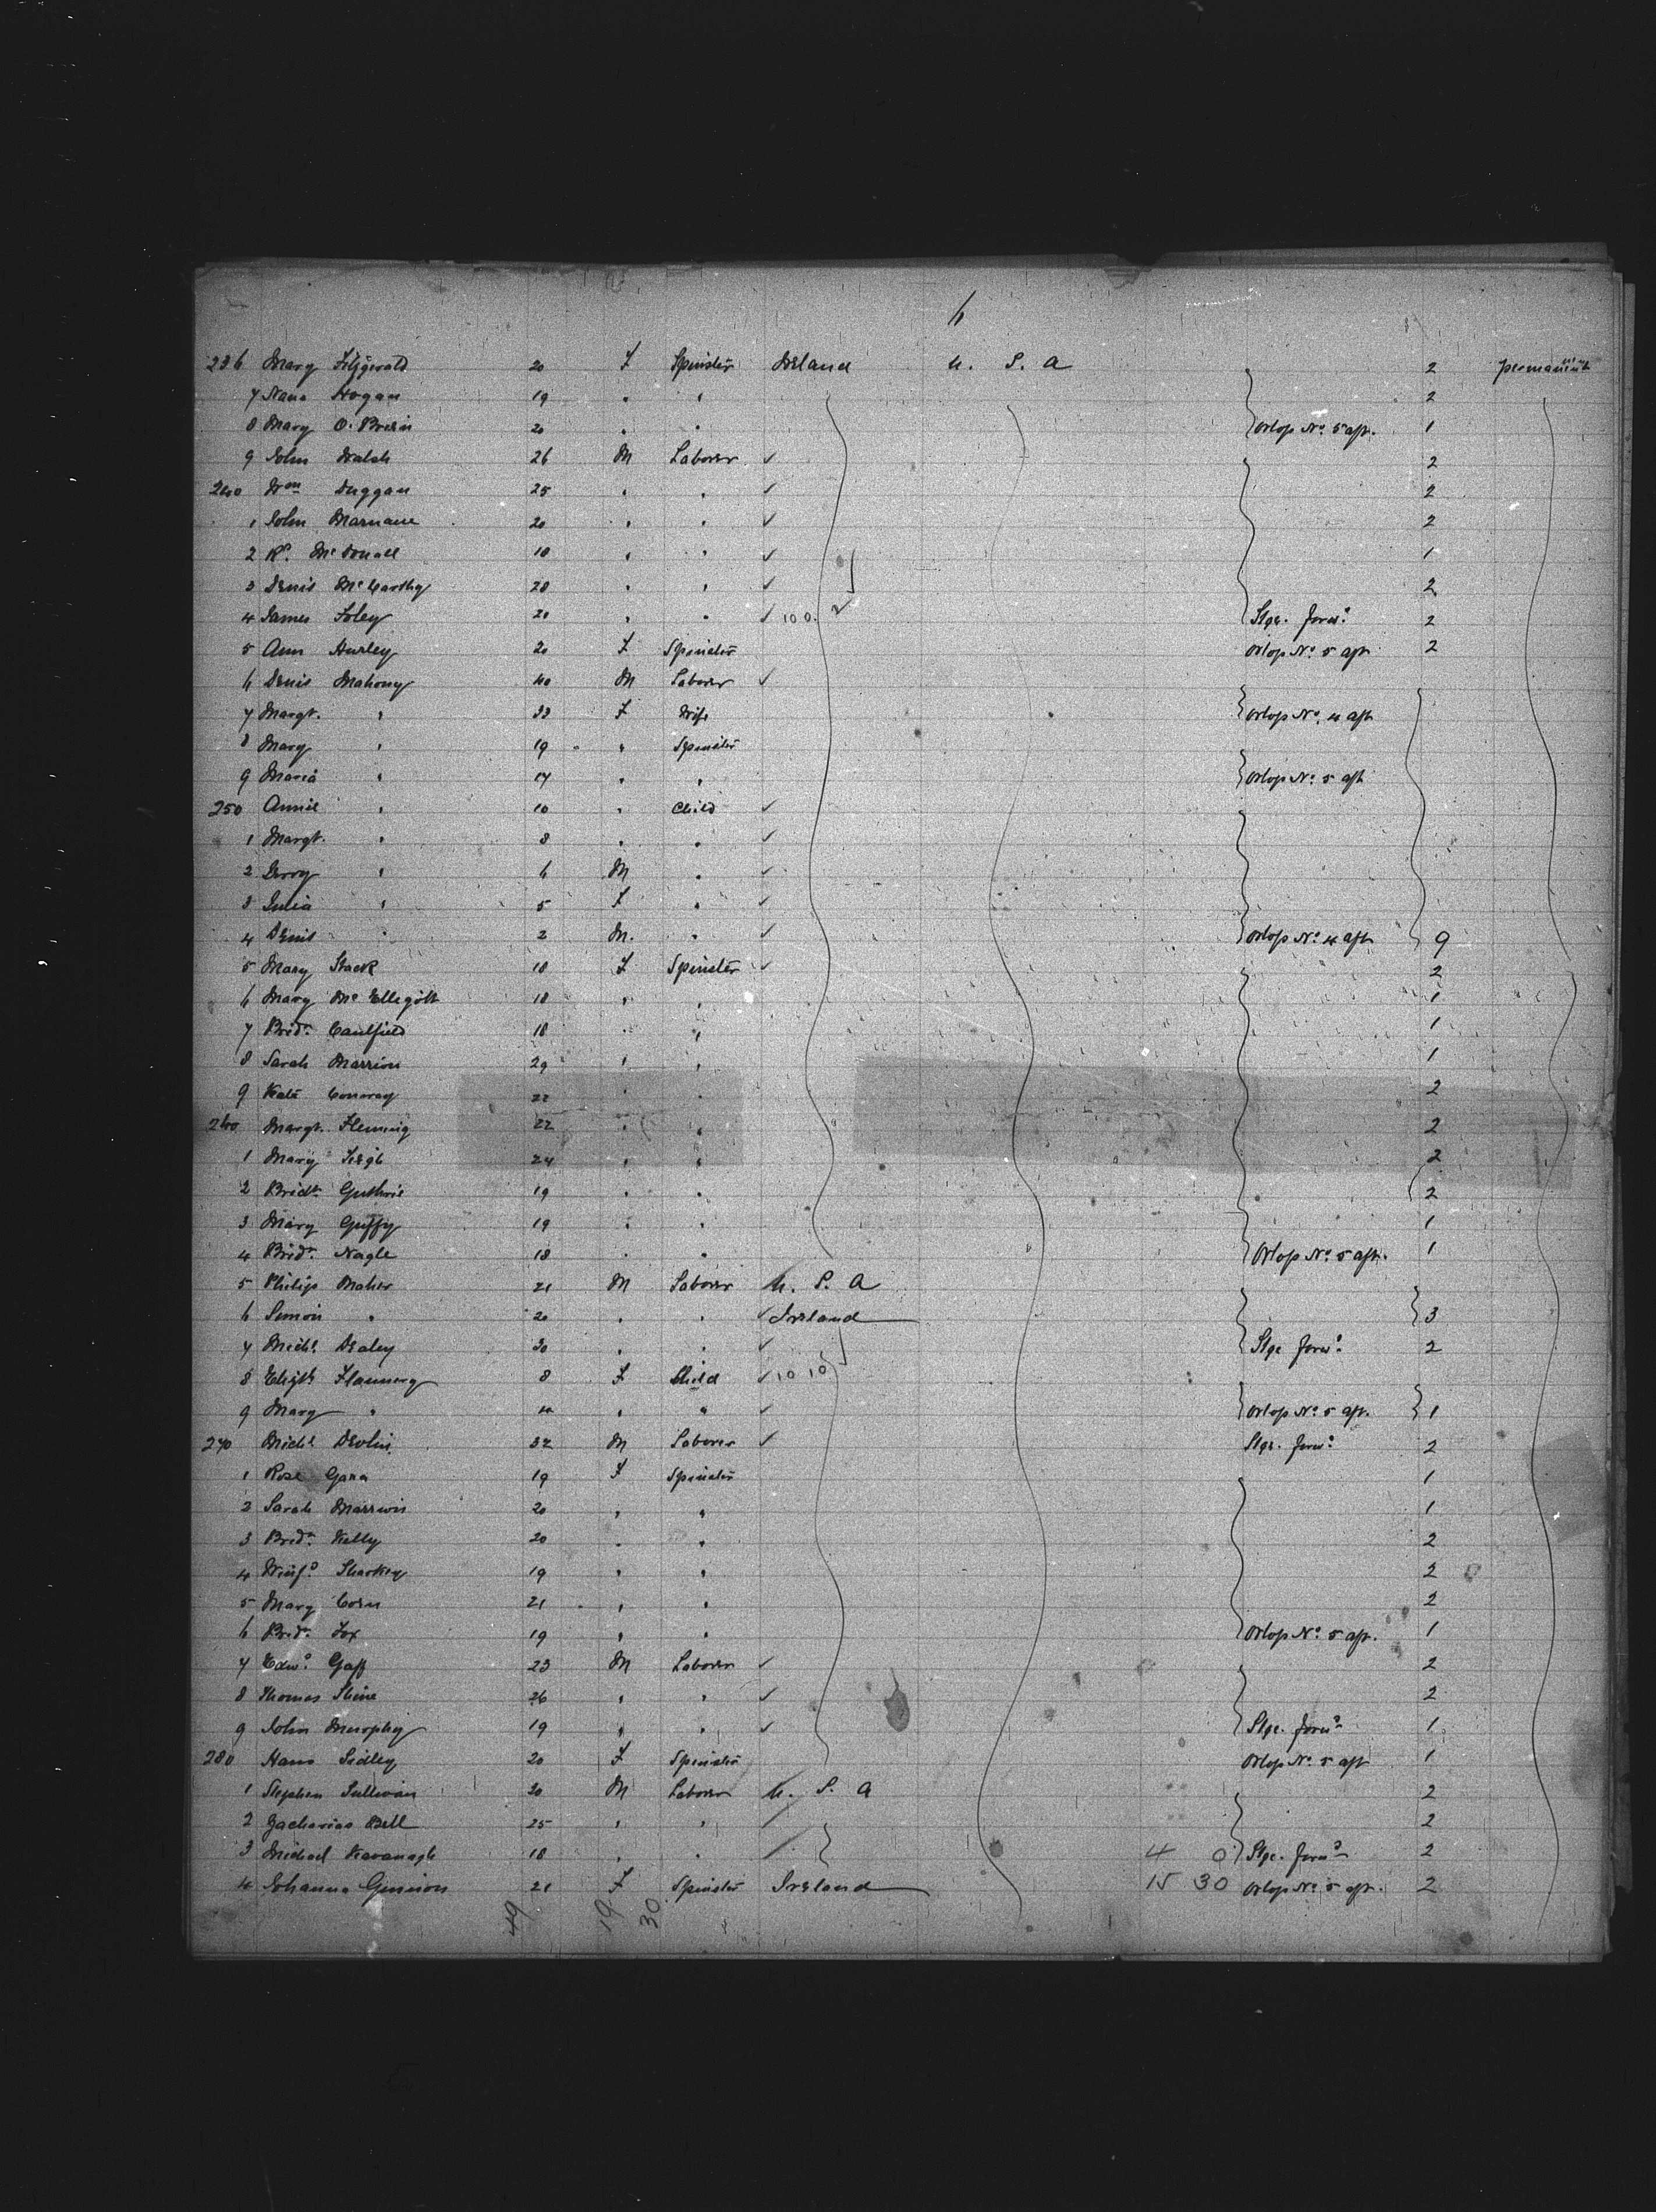 6
236 Mary Fitzgerald 20 F Spinster Ireland U. S. A 2 permanent
7 Hana Hogan 19 " " 2
8 Mary O'Brien 20 " " Orlop No. 5 aft. 1
9 John Walsh 26 M Laborer ✓ 2
240 Wm Duggan 25 " " ✓ 2
1 John Marnane 20 " " ✓ 2
2 Rd. McDonall 18 " " ✓ 1
3 Denis McCarthy 28 " " ✓ 2
4 James Foley 20 " " ✓ 10 0. 2 Stge. Forwd. 2
5 Ann Hurley 20 F Spinster Orlop No. 5 aft 2
6 Denis Mahony 40 M Laborer ✓
7 Margt. " 33 F Wife Orlop No. 4 aft
8 Mary " 19 " Spinster
9 Maria " 14 " " Orlop No. 5 aft
250 Annie " 10 " Child ✓
1 Margt. " 8 " " ✓
2 Jerry " 6 M " ✓
3 Julia " 5 F " ✓
4 Denis " 2 M. " ✓ Orlop No. 4 aft 9
5 Mary Stack 18 F Spinster ✓ 2
6 Mary McElligott 18 " " 1
7 Bridt. Caulfield 18 " " 1
8 Sarah Marrion 29 " " 1
9 Kate Conway 22 " " 2
260 Margt. Fleming 22 " " 2
1 Mary Leigh 24 " " 2
2 Bridt. Guthrie 19 " " 2
3 Mary Guffy 19 " " 1
4 Bridt. Nagle 18 " " Orlop No. 5 aft. 1
5 Philip Maher 21 M Laborer U. S. A
6 Simon " 20 " " ✓ Ireland 3
7 Michl. Dealey 30 " " ✓ Stge Forwd. 2
8 Elizth. Flannery 8 F Child ✓ 10 10
9 Mary " 4 " " ✓ Orlop No. 5 aft. 1
270 Michl. Devlin 32 M Laborer ✓ Stge. Forwd. 2
1 Rose Gara 19 F Spinster 1
2 Sarah Marrion 20 " " 1
3 Bridt. Kelly 20 " " 2
4 Winifd. Sharkey 19 " " 2
5 Mary Corn 21 " " 2
6 Bridt. Fox 19 " " Orlop No. 5 aft. 1
7 Edwd. Gaff 23 M Laborer ✓ 2
8 Thomas Shine 26 " " ✓ 2
9 John Murphy 19 " " ✓ Stge. Forwd. 1
280 Hana Sidley 20 F Spinster Orlop No. 5 aft 1
1 Stephen Sullivan 30 M Laborer U. S. A 2
2 Zacharias Bell 25 " " 2
3 Michael Kavanagh 18 " " 4 0 Stge. Forwd. 2
4 Johanna 21 F Spinster Ireland 15 30 Orlop No. 5 aft. 2
49 19 30